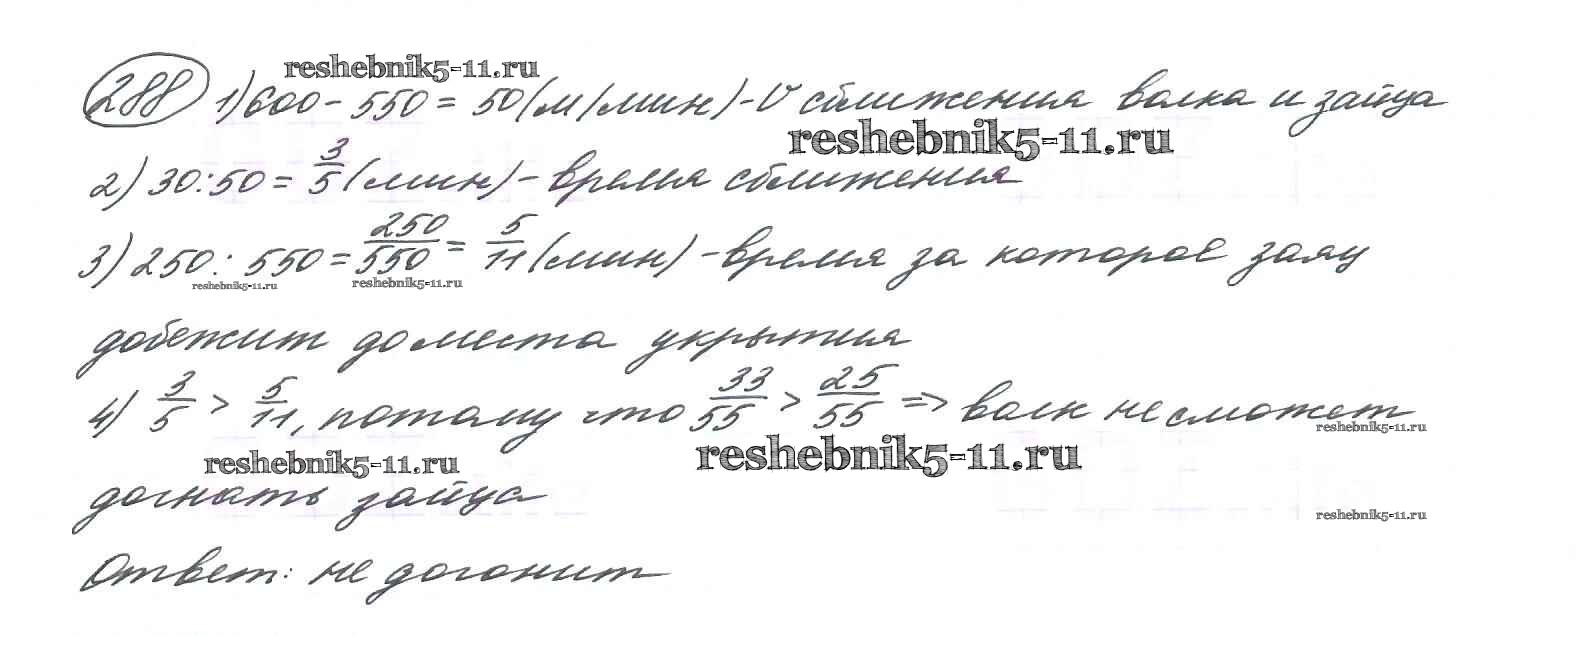 reshebnik5-11.ru
288 1) 600 - 550 = 50 (м/мин) - V сближения волка и зайца
reshebnik5-11.ru
2) 30 : 50 = 3/5 (мин) - время сближения
3) 250 : 550 = 250/550 = 5/11 (мин) - время за которое заяц
reshebnik5-11.ru reshebnik5-11.ru
добежит до места укрытия
4) 3/5 > 5/11, потому что 33/55 > 25/55 => волк не сможет
reshebnik5-11.ru
reshebnik5-11.ru reshebnik5-11.ru
догнать зайца
reshebnik5-11.ru
Ответ: не догонит